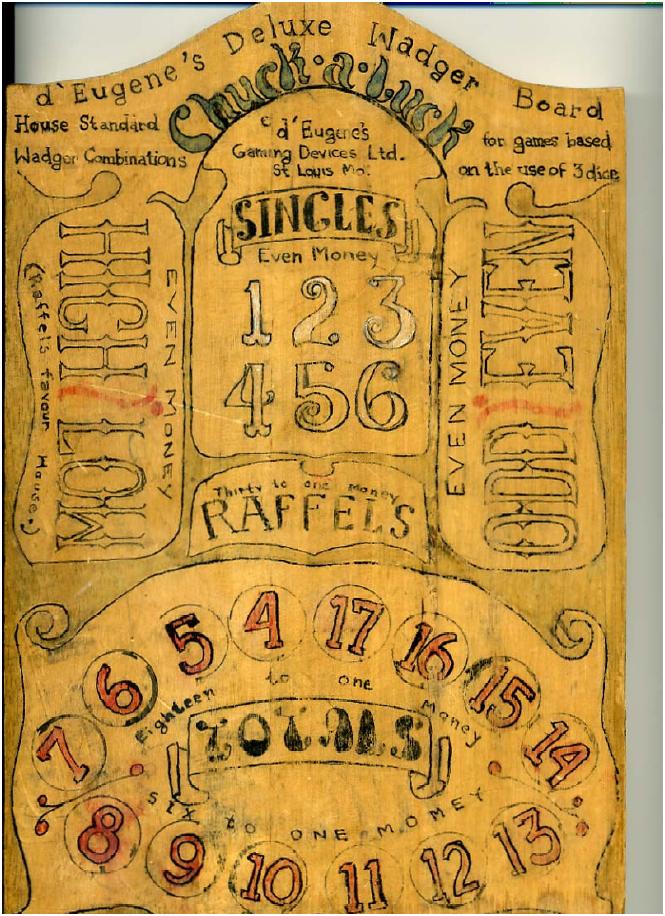 d'Eugene's Deluxe Wadger Board
Chuck·a·Luck
House Standard
Wadger Combinations
d'Eugene's
Gaming Devices Ltd.
St Louis Mo.
for games based
on the use of 3 dice
HIGH
LOW
EVEN MONEY
(Raffels favour House.)
SINGLES
Even Money
1 2 3
4 5 6
EVEN MONEY
ODD
EVEN
Thirty to one Money
RAFFELS
7 6 5 4 17 16 15 14
Eighteen to one Money
TOTALS
SIX TO ONE MOMEY
8 9 10 11 12 13